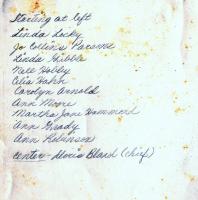 Starting at left
Linda Locky
Jo Collins Parsons
Linda Hibble
Nell Hobby
Celia Hahn
Carolyn Arnold
Ann Moore
Martha Jane Hammond
Ann Grady
Ann Robinson
center - Doris Bland (chief)